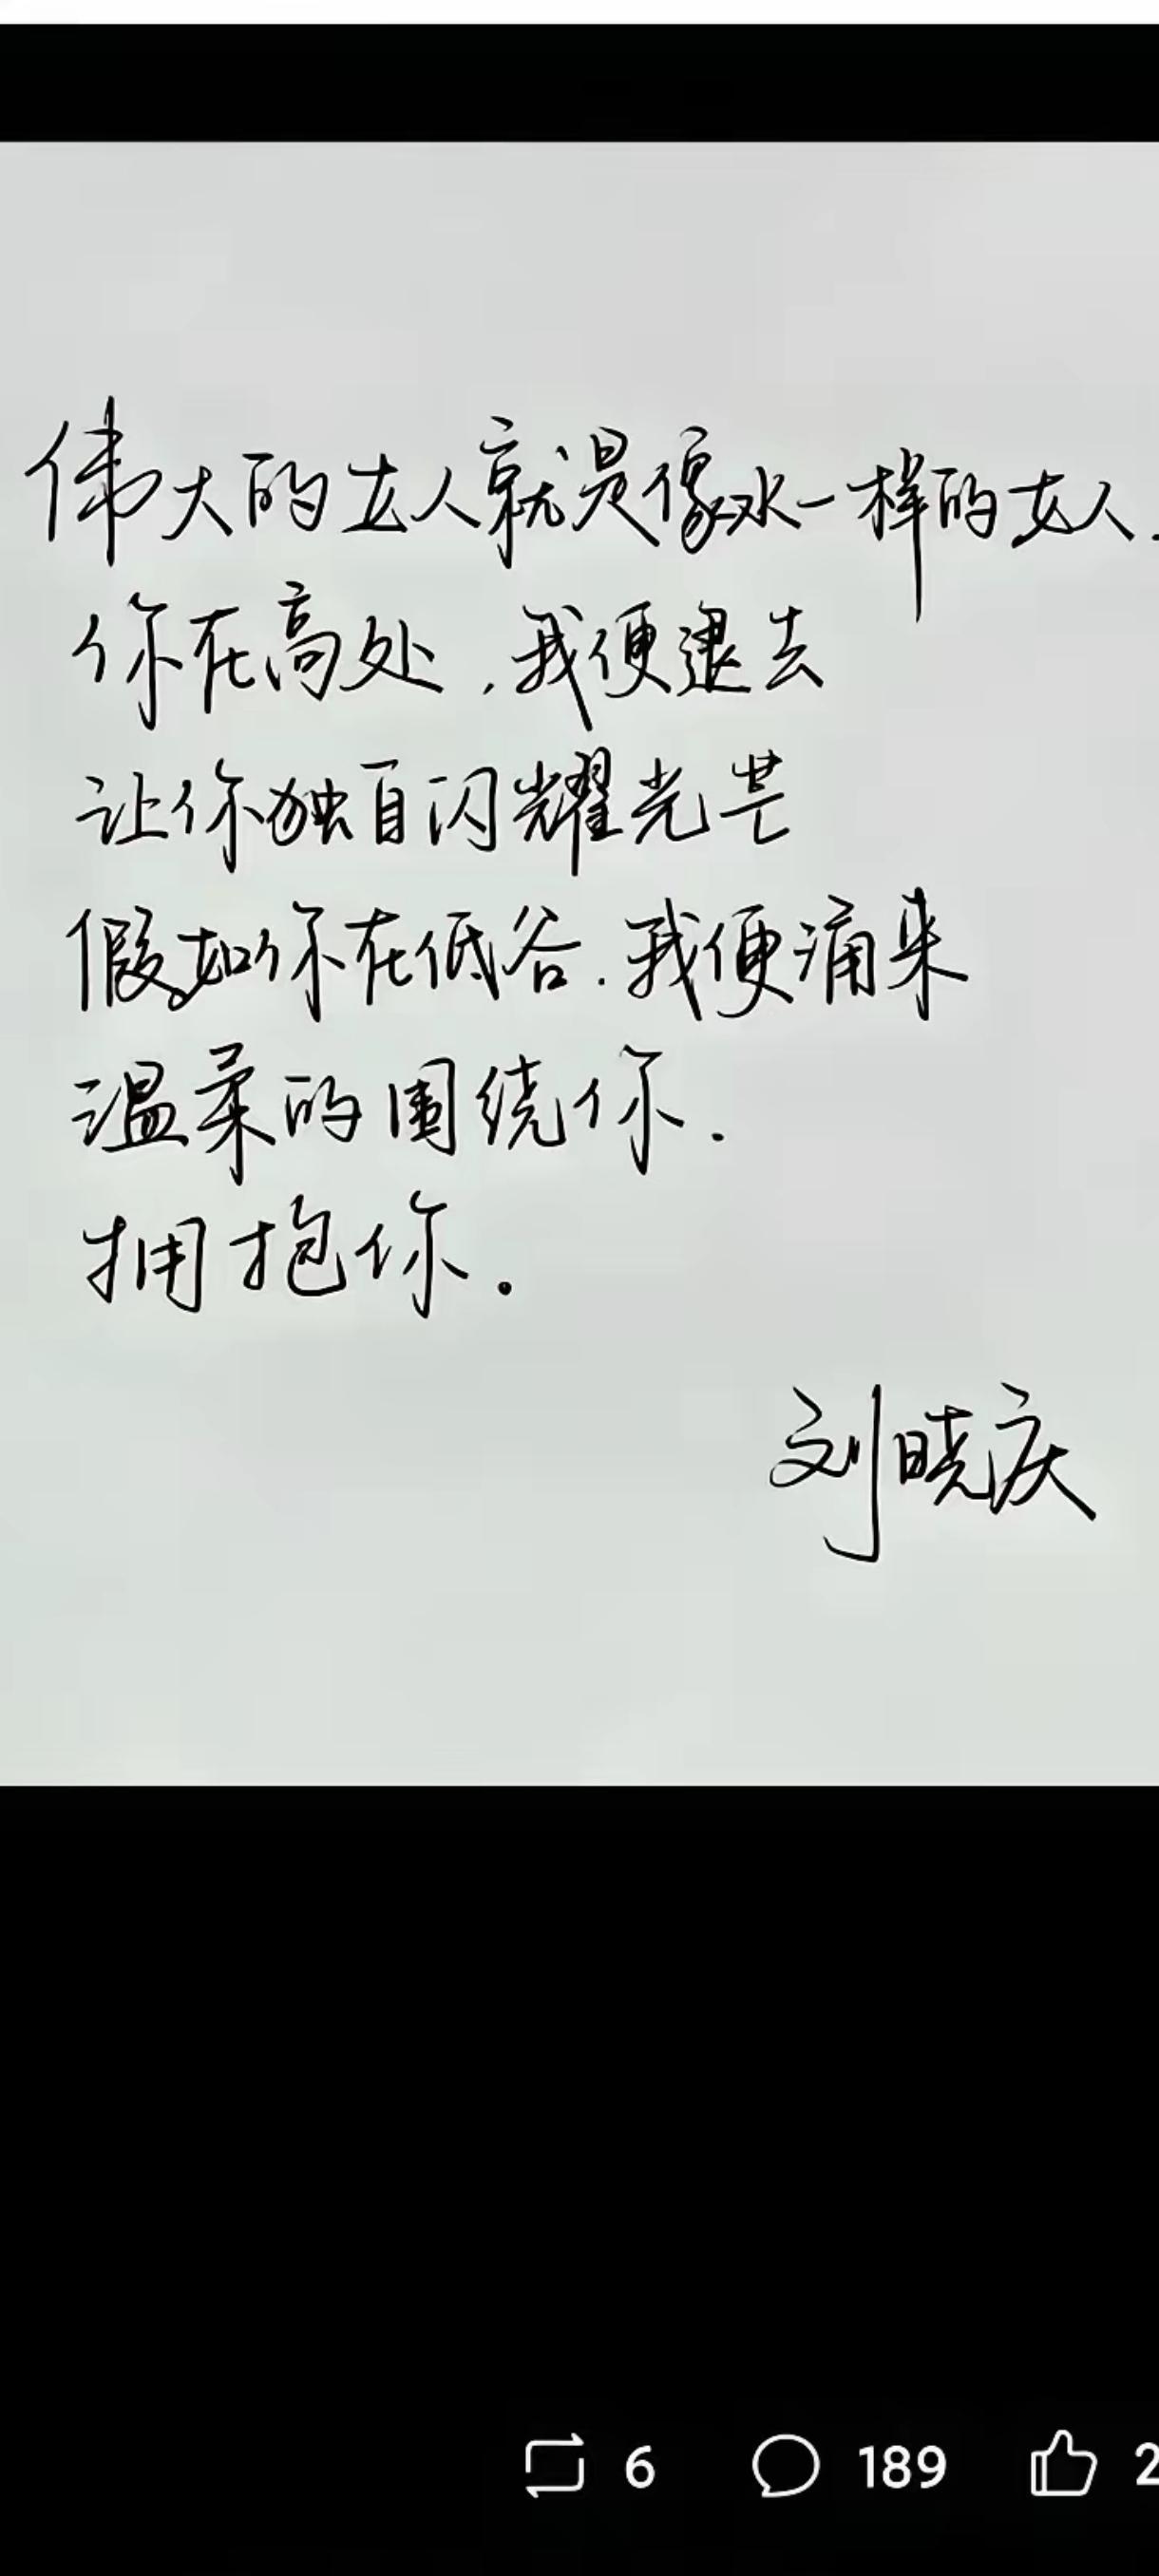 伟大的女人就是像水一样的女人.
你在高处,我便退去
让你独自闪耀光芒
假如你在低谷.我便涌来
温柔的围绕你.
拥抱你.
刘晓庆
6 189 2